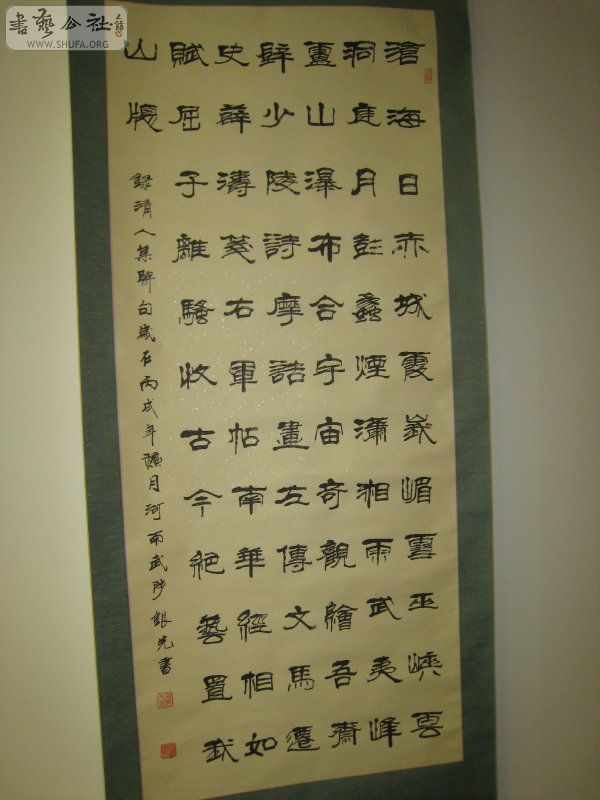 書藝公社
WWW.SHUFA.ORG
滄海日赤城霞峩嵋雪巫峽雲
洞庭月彭蠡煙瀟湘雨武夷峰
廬山瀑布合宇宙奇觀繪吾齋
壁少陵詩摩詰畫左傳文馬遷
史薛濤箋右軍帖南華經相如
賦屈子離騷收古今絕藝置我
山牕
錄清人集聯句歲在丙戌年月河南武陟銀先書